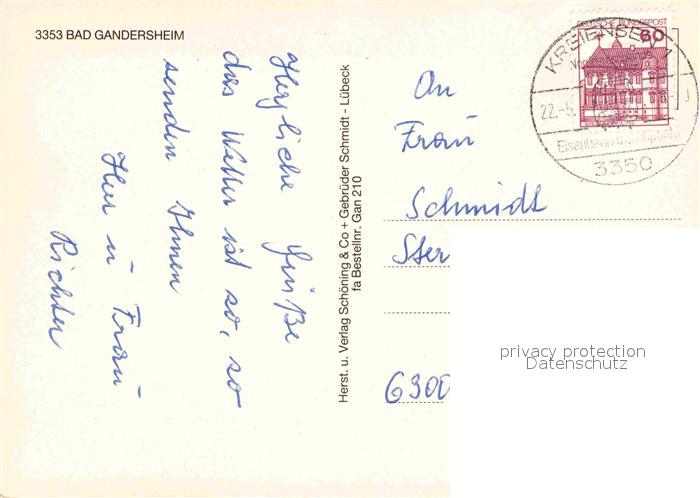 3353 BAD GANDERSHEIM
Herzliche Grüße
das Wetter ist so, so
senden Ihnen
Herr u Frau
Richter
Herst. u. Verlag Schöning & Co + Gebrüder Schmidt - Lübeck
fa Bestellnr. Gan 210
An
Frau
Schmidt
Ster
6300
DEUTSCHE BUNDESPOST
60
KREIENSEN 1
22.-5.
3350
privacy protection
Datenschutz